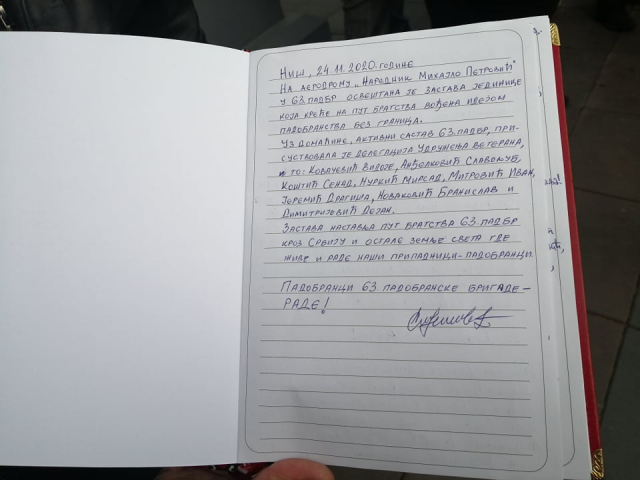 Ниш, 24.11.2020. године
На аеродрому „Народник Михајло Петровић"
у 63. падбр освештана је застава јединице
која креће на пут братства вођена идејом
падобранства без граница.
Уз домаћине, активни састав 63. падбр, при-
суствовала је делегација Удружења ветерана,
и то: Ковачевић Видоје, Анђелковић Славољуб,
Коштић Сенад, Нуркић Мирсад, Митровић Иван,
Јеремић Драгиша, Новаковић Бранислав и
Димитријевић Дејан.
Застава наставља пут братства 63. падбр
кроз Србију и остале земље света где
живе и раде наши припадници-падобранци
Падобранци 63 падобранске бригаде -
РАДЕ!